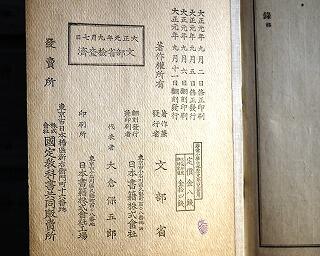 錄
大正元年九月二日修正印刷
大正元年九月五日修正發行
大正元年九月六日翻刻印刷
大正元年九月十一日翻刻發行
著作權所有
著作兼發行者 文部省
定價金八錢
翻刻發行兼印刷者
日本書籍株式會社
代表者 大倉保五郎
印刷所
日本書籍株式會社工場
大正元年九月七日
文部省檢査濟
發賣所
東京市日本橋區新右衞門町十六番地
株式會社 國定敎科書共同販賣所